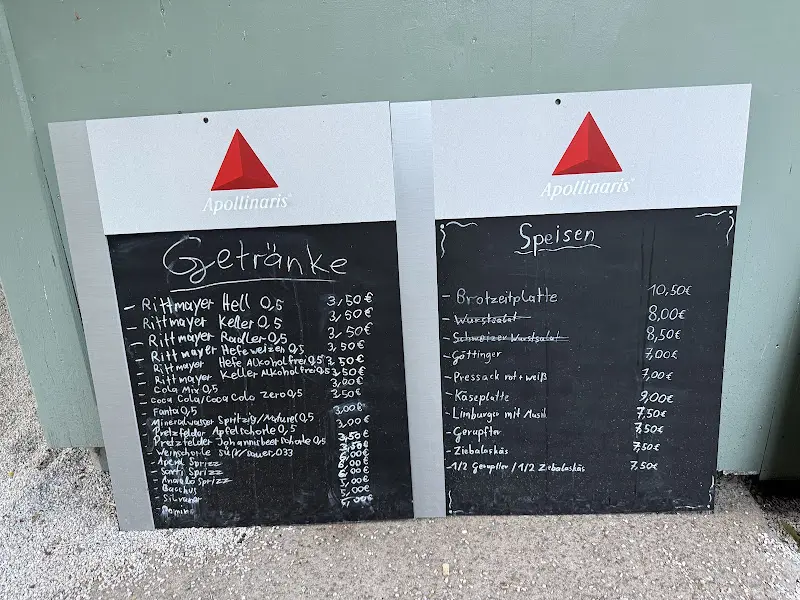 Apollinaris
Getränke
- Rittmayer Hell 0,5 3,50€
- Rittmayer Keller 0,5 3,50€
- Rittmayer Radler 0,5 3,50€
- Rittmayer Hefeweizen 0,5 3,50€
- Rittmayer Hefe Alkoholfrei 0,5 3,50€
- Rittmayer Keller Alkoholfrei 0,5 3,50€
- Cola Mix 0,5 3,00€
- Coca Cola/Coca Cola Zero 0,5 3,50€
- Fanta 0,5 3,00€
- Mineralwasser Spritzig/Naturel 0,5 3,00€
- Pretzfelder Apfelschorle 0,5 3,50€
- Pretzfelder Johannisbeerschorle 0,5
- Weinschorle Süß/Sauer 0,33
- Aperol Sprizz
- Sarti Sprizz
- Amarello Sprizz
- Bacchus 5,00€
- Silvaner 5,00€
- Domina 5,00€
Apollinaris
Speisen
- Brotzeitplatte 10,50€
- Wurstsalat 8,00€
- Schweizer Wurstsalat 8,50€
- Göttinger 7,00€
- Pressack rot + weiß 7,00€
- Käseplatte 9,00€
- Limburger mit Musik 7,50€
- Gerupfter 7,50€
- Ziebalaskäs 7,50€
- 1/2 Gerupfter / 1/2 Ziebalaskäs 7,50€